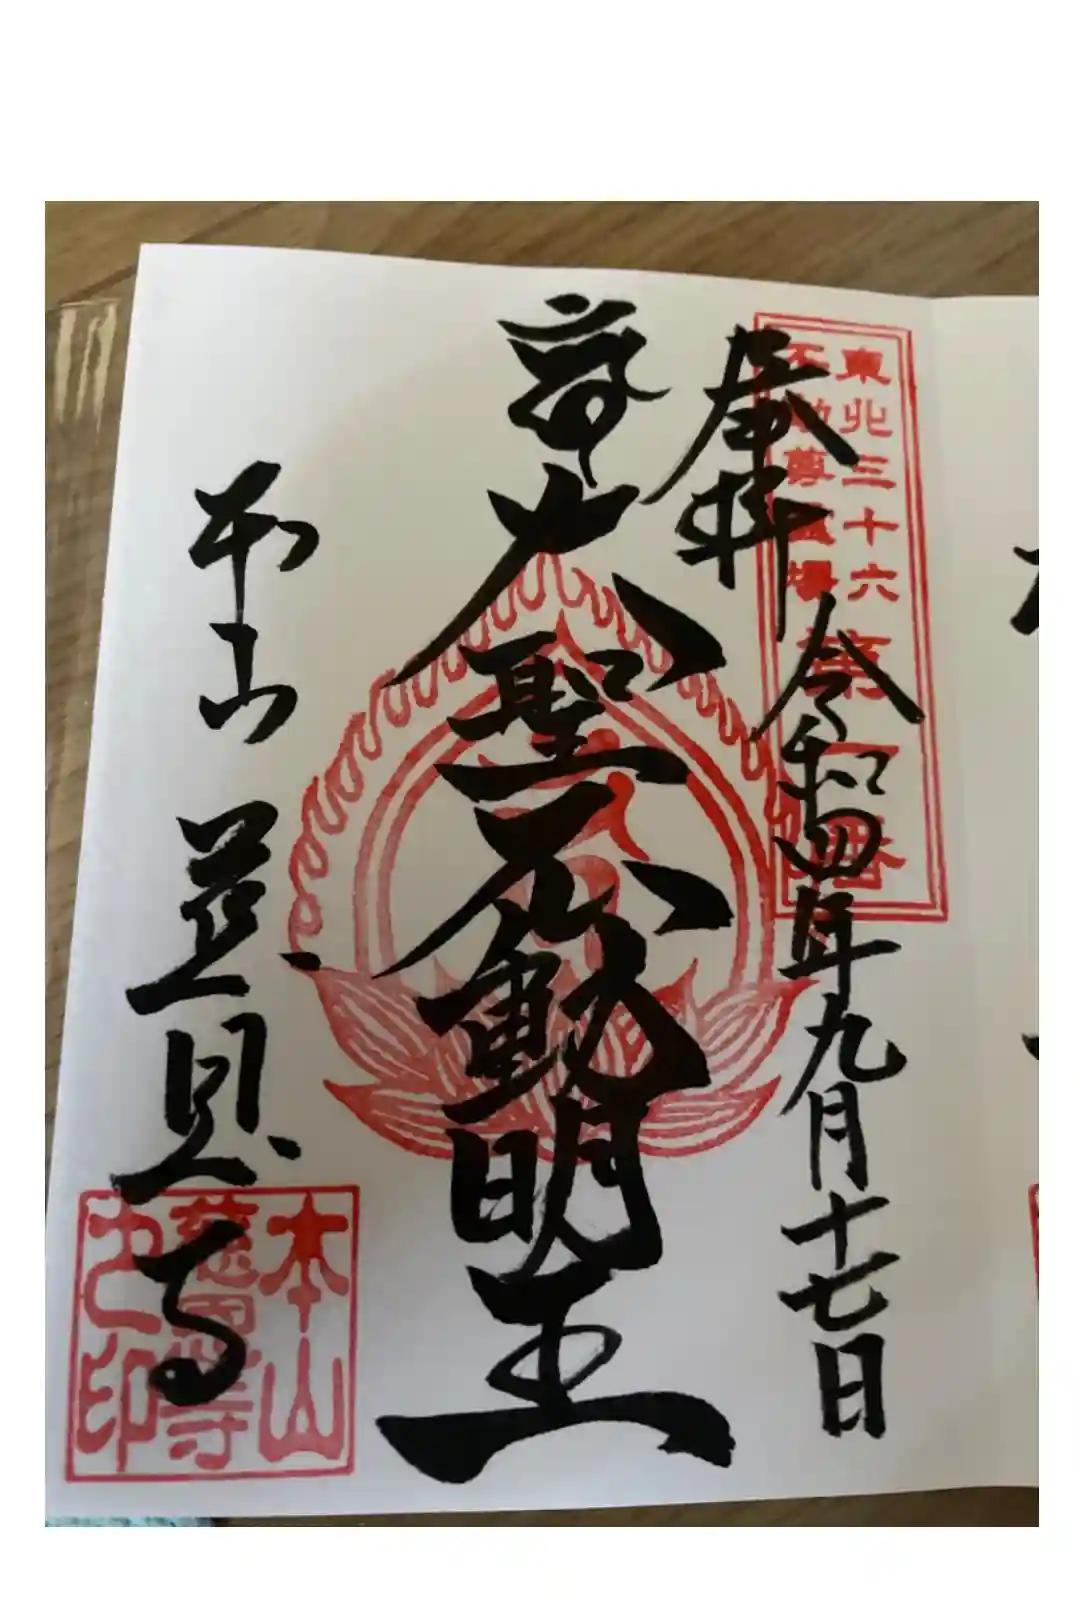 東北三十六
不動尊霊場
第一番
奉拝
令和四年九月十七日
大聖不動明王
本山
慈恩寺
本山
慈恩寺
之印